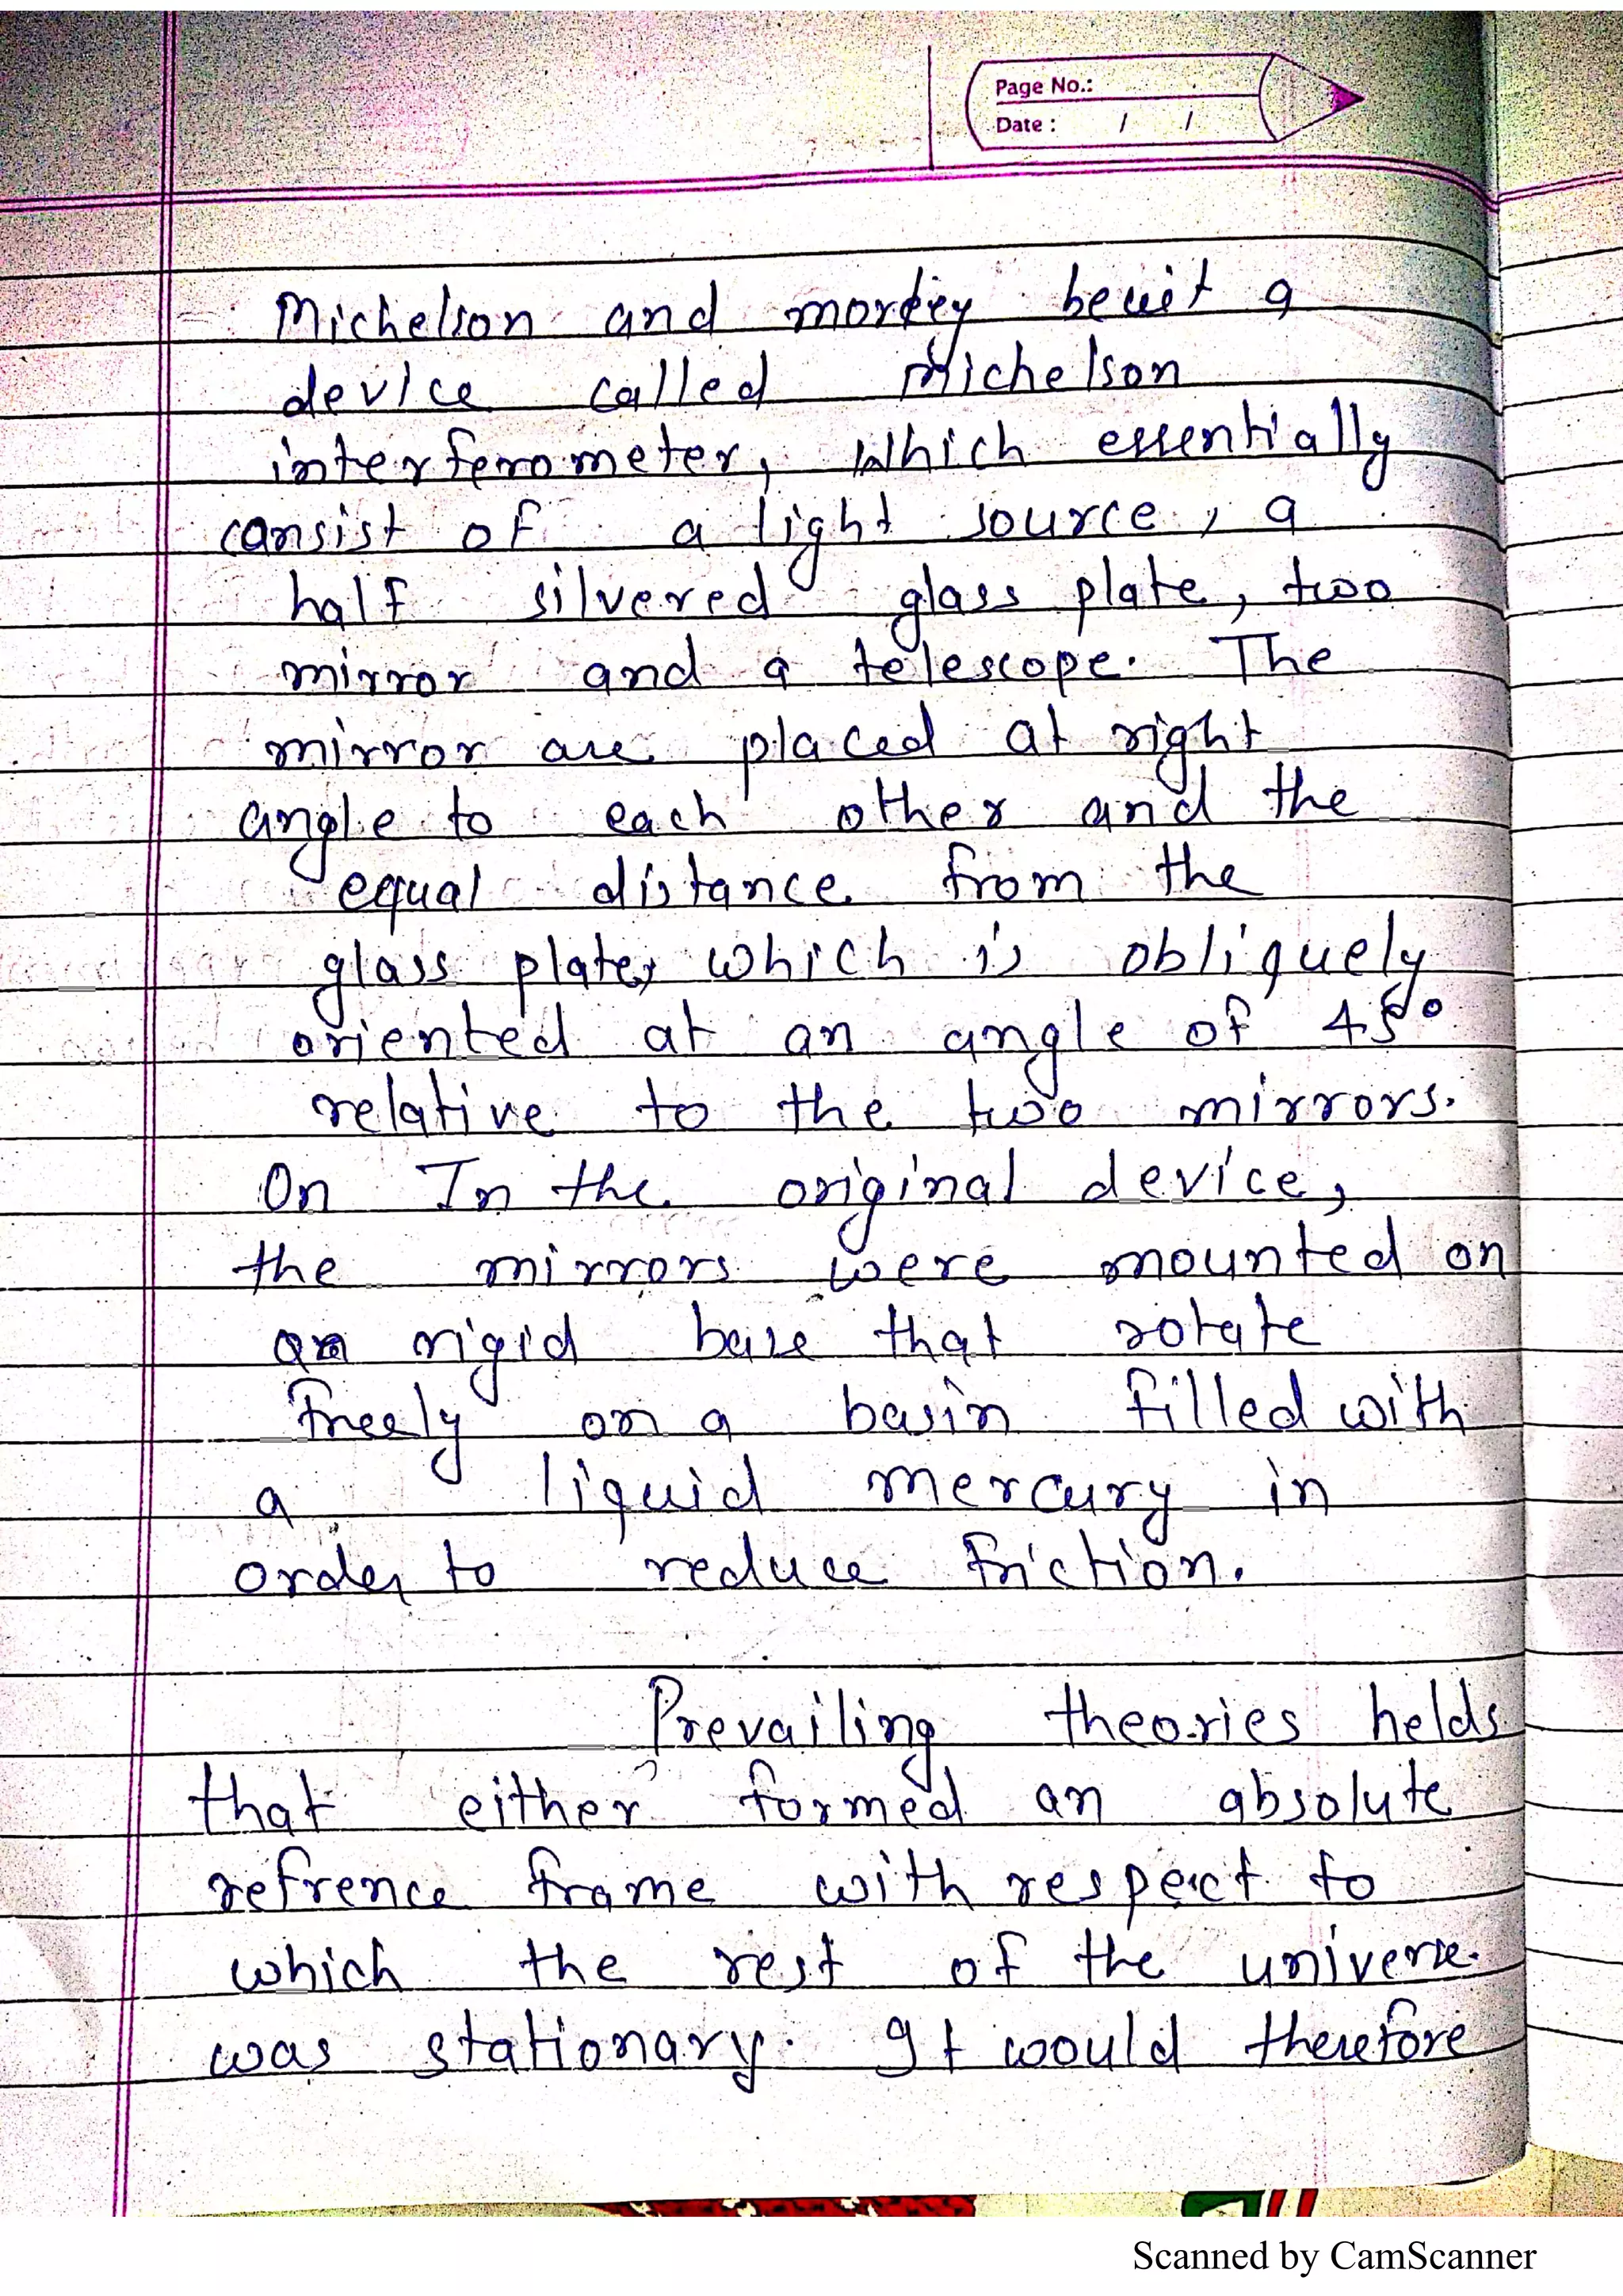 Page No.:
Date : / /
Michelson and morley beuit a
device called Michelson
interferometer, which essentially
consist of a light source, a
half silvered glass plate, two
mirror and a telescope. The
mirror are placed at right
angle to each other and the
equal distance from the
glass plate, which is obliquely
oriented at an angle of 45°
relative to the two mirrors.
On In the original device,
the mirrors were mounted on
a rigid base that rotate
freely on a basin filled with
a liquid mercury in
order to reduce friction.
Prevailing theories helds
that either formed an absolute
refrence frame with respect to
which the rest of the universe
was stationary. It would therefore
Scanned by CamScanner